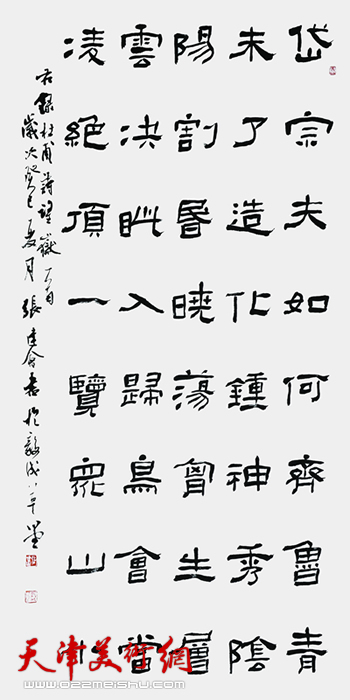 岱宗夫如何齊魯青
未了造化鍾神秀陰
陽割昏曉蕩胷生層
雲決眥入歸鳥會當
凌絕頂一覽眾山小
右錄杜甫詩望嶽一首
歲次癸巳夏月張建會書於
天津美術網
www.022meishu.com